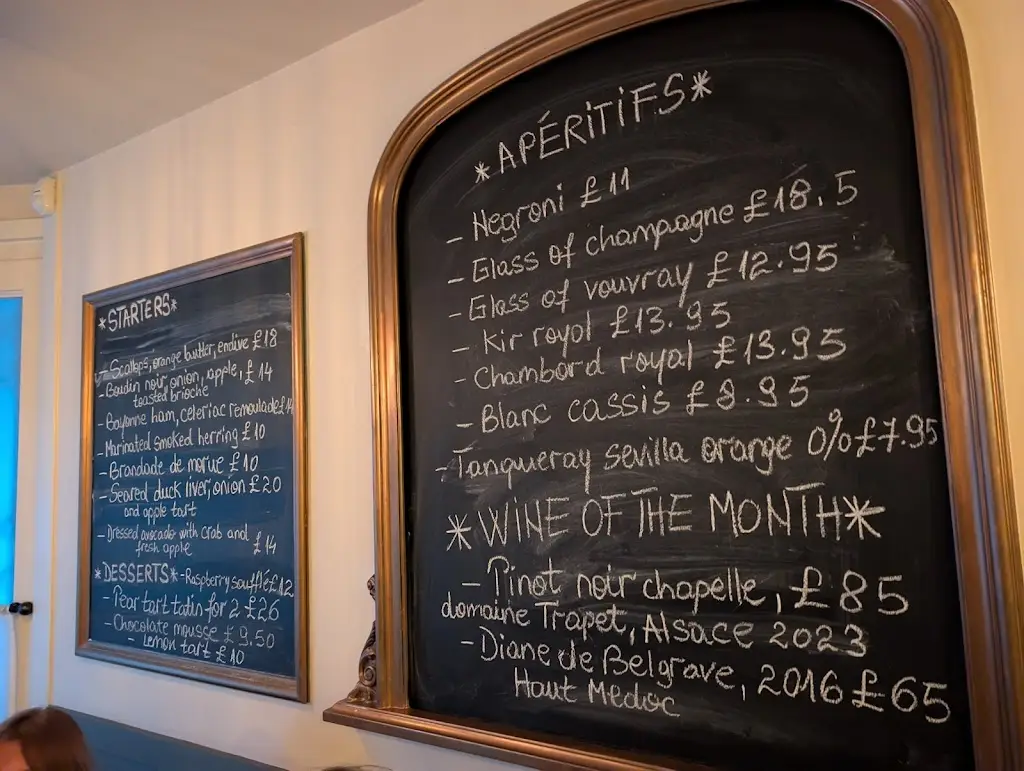 *STARTERS*
- Scallops, orange butter, endive £18
- Boudin noir, onion, apple, £14
toasted brioche
- Bayonne ham, celeriac remoulade £14
- Marinated smoked herring £10
- Brandade de morue £10
- Seared duck liver, onion £20
and apple tart
- Dressed avocado with crab and
fresh apple £14
*DESSERTS* - Raspberry soufflé £12
- Pear tart tatin for 2 £26
- Chocolate mousse £9.50
- Lemon tart £10
*APÉRITIFS*
- Negroni £11
- Glass of champagne £18.5
- Glass of vouvray £12.95
- Kir royal £13.95
- Chambord royal £13.95
- Blanc cassis £9.95
- Tanqueray sevilla orange 0% £7.95
*WINE OF THE MONTH*
- Pinot noir chapelle, £85
domaine Trapet, Alsace 2023
- Diane de Belgrave, 2016 £65
Haut Medoc